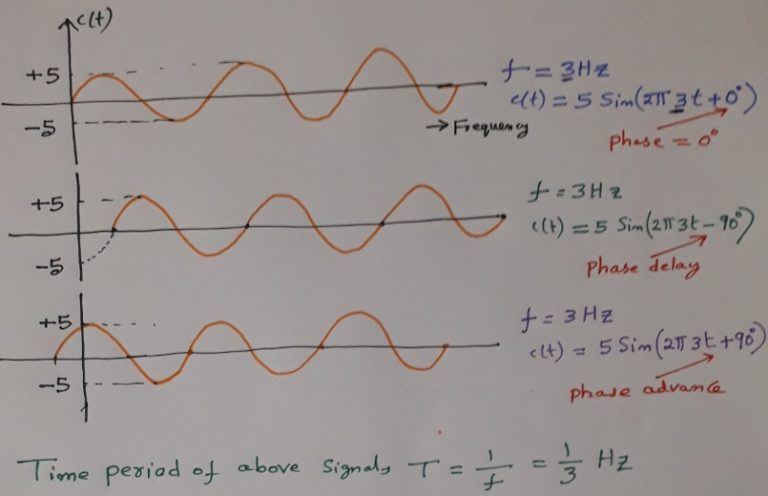 c(t)
+5
-5
→ Frequency
f = 3Hz
c(t) = 5 Sin(2π 3t + 0°)
Phase = 0°
+5
-5
f = 3Hz
c(t) = 5 Sin(2π 3t - 90°)
Phase delay
+5
-5
f = 3 Hz
c(t) = 5 Sin(2π 3t + 90°)
Phase advance
Time period of above Signals T = 1/f = 1/3 Hz